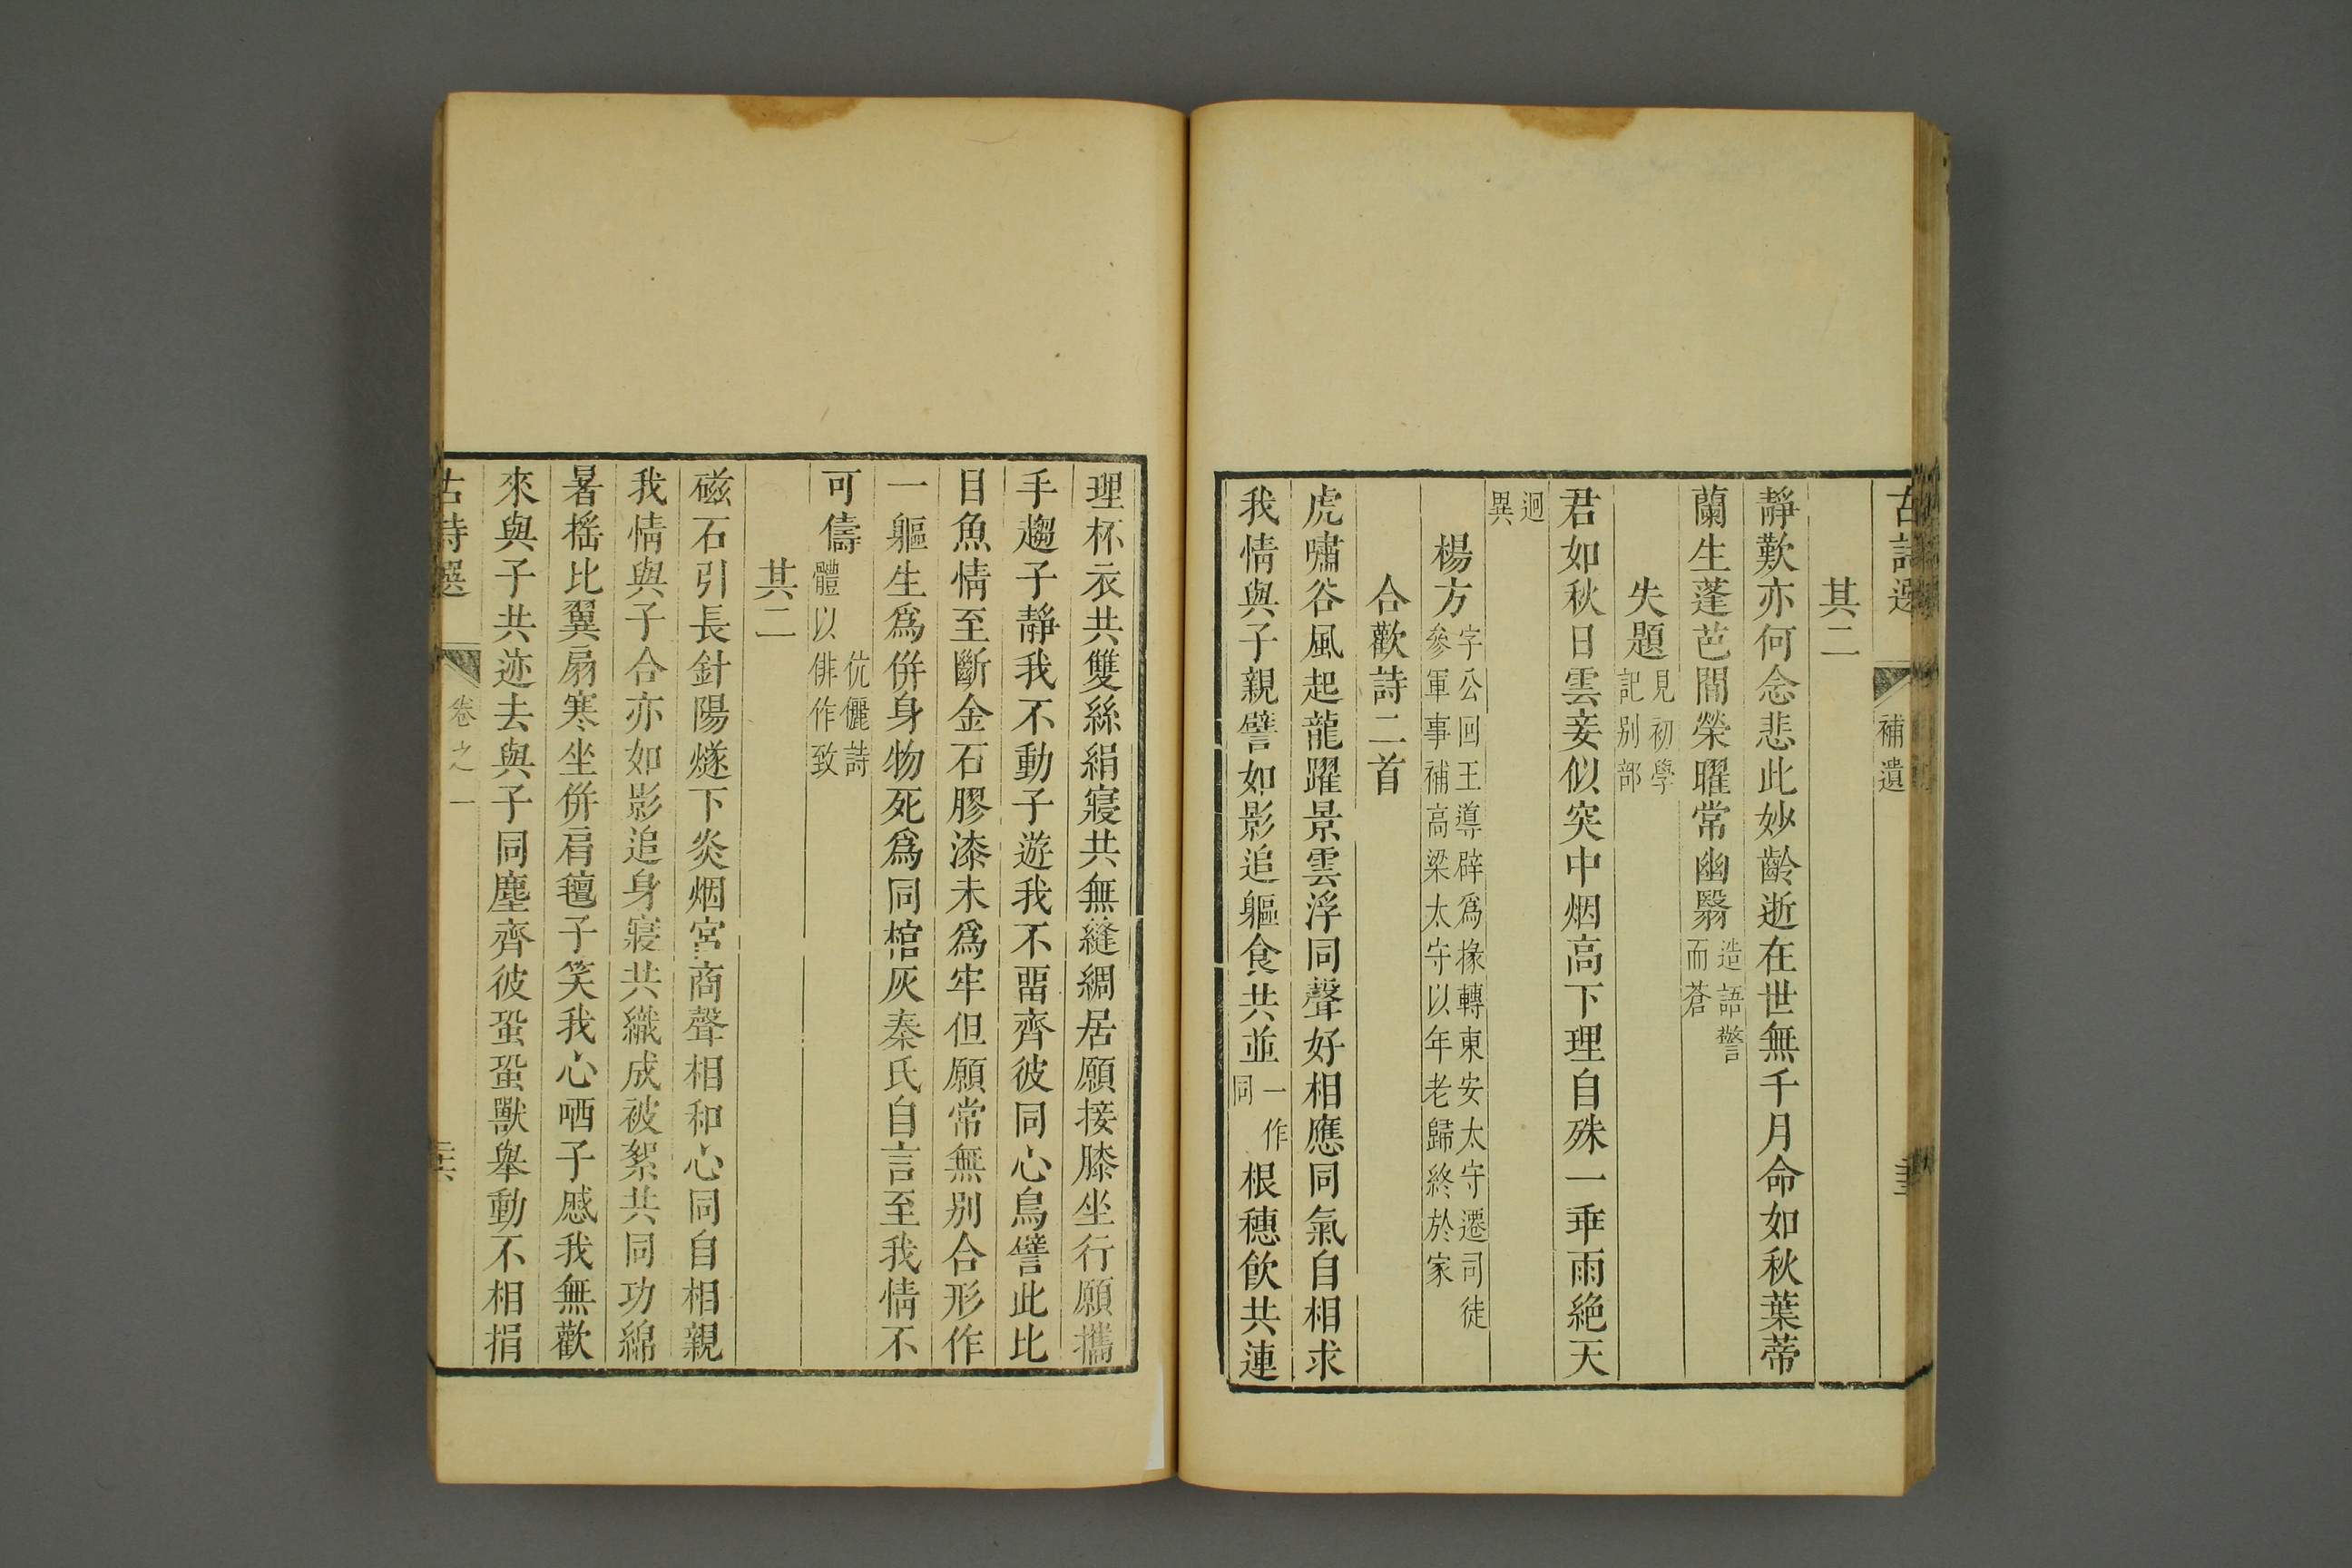 古詩選 補遺
其二
靜歎亦何念悲此妙齡逝在世無千月命如秋葉蒂
蘭生蓬芭間榮曜常幽翳造語警而蒼
失題見初學記别部
君如秋日雲妾似突中烟高下理自殊一乖雨絶天
迥異
楊方字公回王導辟爲掾轉東安太守遷司徒參軍事補高梁太守以年老歸終於家
合歡詩二首
虎嘯谷風起龍躍景雲浮同聲好相應同氣自相求
我情與子親譬如影追軀食共並一作同根穗飲共連
理杯衣共雙絲絹寢共無縫綢居願接膝坐行願攜
手趨子靜我不動子遊我不畱齊彼同心鳥譬此比
目魚情至斷金石膠漆未爲牢但願常無别合形作
一軀生爲併身物死爲同棺灰秦氏自言至我情不
可儔伉儷詩體以俳作致
其二
磁石引長針陽燧下炎烟宮商聲相和心同自相親
我情與子合亦如影追身寢共織成被絮共同功綿
暑搖比翼扇寒坐併肩氊子笑我心哂子慼我無歡
來與子共迹去與子同塵齊彼蛩蛩獸舉動不相捐
古詩選 卷之一